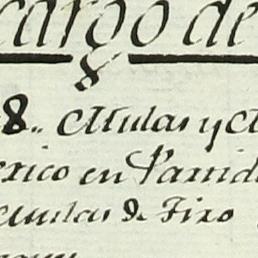 cargo de
8.. Mulas y
xico en Parrid
Mulas de Tiro